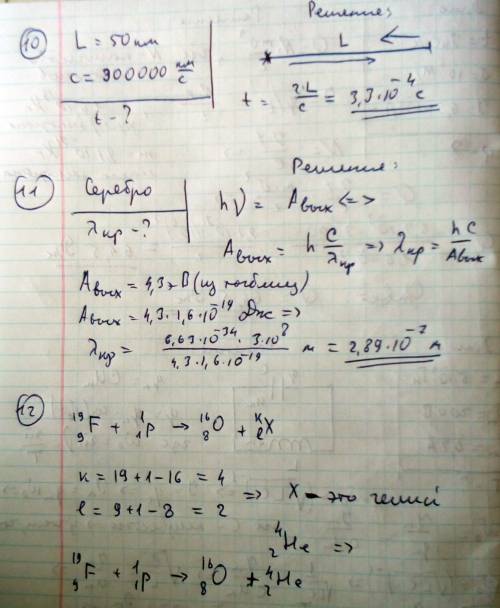 Решение:
10
L = 50 км
c = 300000 км/с
t - ?
L
t = 2·L/c = 3,3·10⁻⁴ с
11
Решение:
Серебро
λкр - ?
hν = Aвых <=>
Aвых = h c/λкр => λкр = hc/Aвых
Aвых = 4,3 эВ (из таблиц)
Aвых = 4,3·1,6·10⁻¹⁹ Дж =>
λкр = 6,63·10⁻³⁴·3·10⁸/4,3·1,6·10⁻¹⁹ м = 2,89·10⁻⁷ м
12
¹⁹₉F + ¹₁p → ¹⁶₈O + ᵏₗX
k = 19+1-16 = 4
l = 9+1-8 = 2
=> X - это гелий
⁴₂He =>
¹⁹₉F + ¹₁p → ¹⁶₈O + ⁴₂He